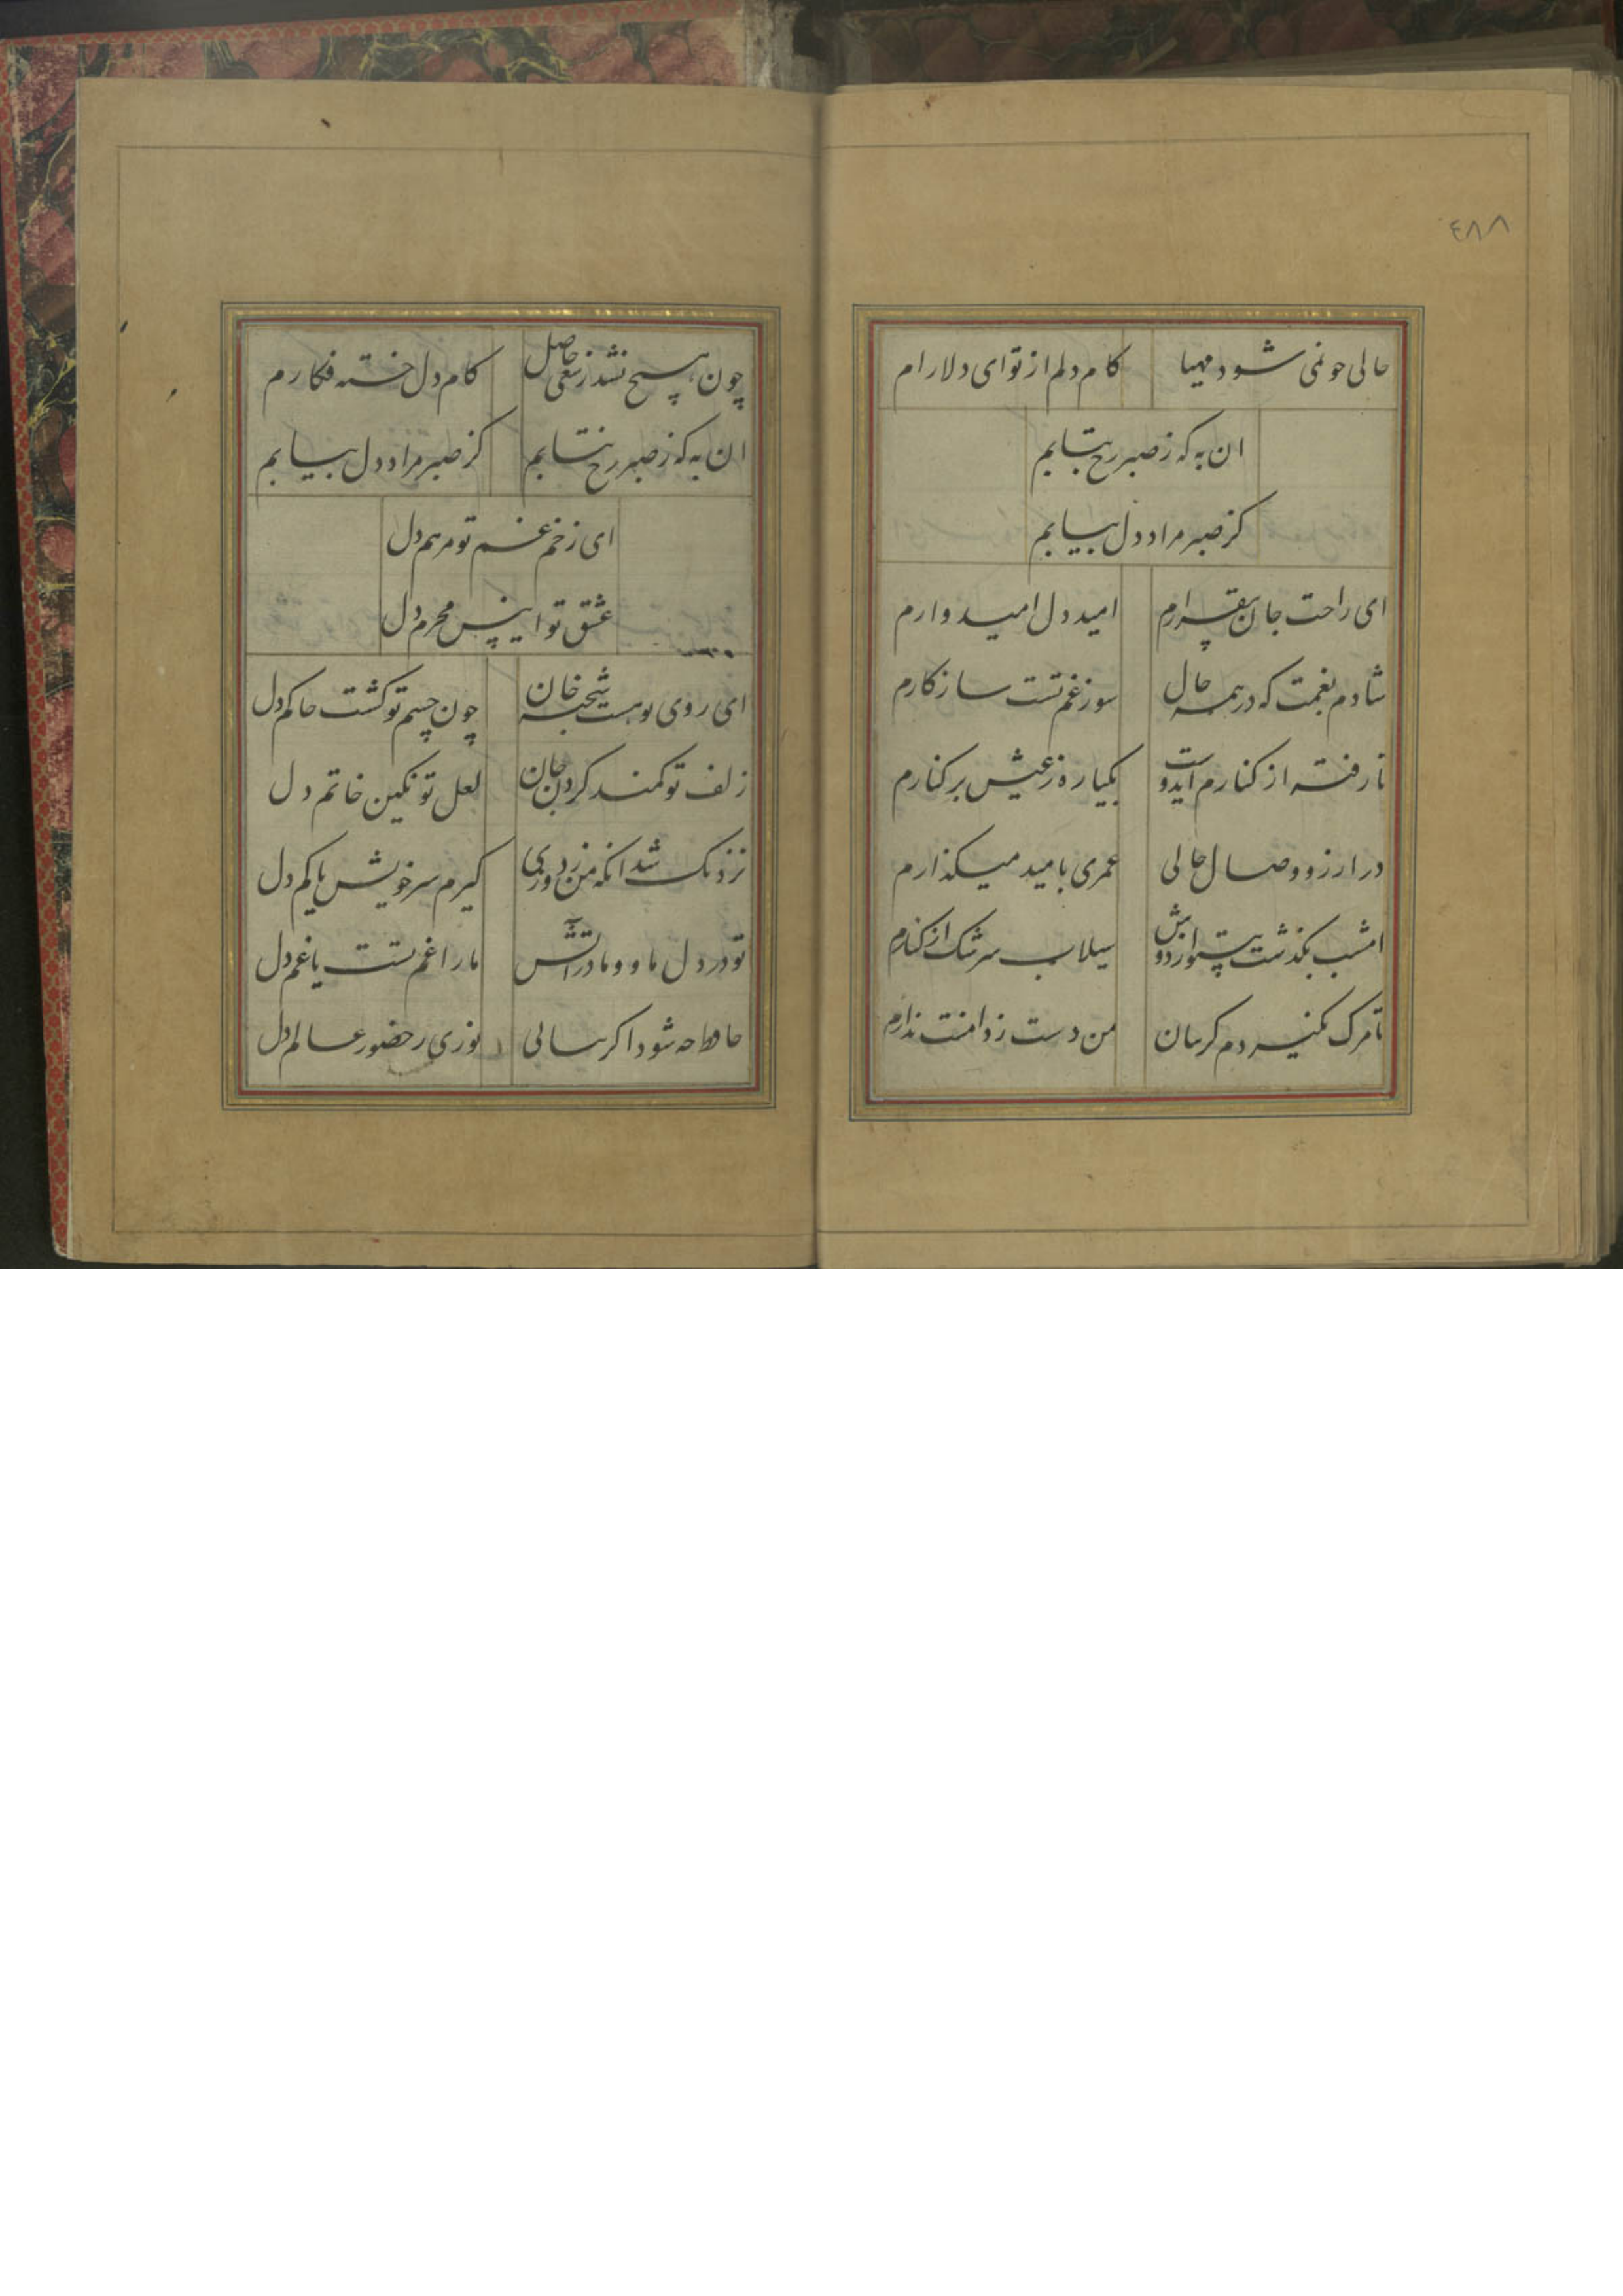 ۴۸۸
حالی چو نمی شود مهیا کام دلم از تو ای دلارام
ان به که ز صبر رخ نتابم
کز صبر مراد دل بیابم
ای راحت جان بیقرارم امید دل امیدوارم
شادم بغمت که در همه حال سوز غم تست سازکارم
تا رفته از کنارم ایدوست یکباره ز عیش بر کنارم
در ارزو وصال حالی عمری بامید میکذارم
امشب بکذشت بیتو از دوش سیلاب سرشک از کنارم
تا مرک نکیردم کریبان من دست ز دامنت ندارم
چون هیچ نشد ز سعی حاصل کام دل خسته فکارم
ان به که ز صبر رخ نتابم کز صبر مراد دل بیابم
ای زخم غم تو مرهم دل
عشق تو انیس محرم دل
ای روی تو هست شحنه جان چون چشم تو کشت حاکم دل
زلف تو کمند کردن جان لعل تو نکین خاتم دل
نزدیک شد انکه من ز دوری کیرم سر خویش یا کم دل
تو در دل ما و ما در اتش ما را غم تست یا غم دل
حافظ چه شود اکر بسالی روزی حضور عالم دل